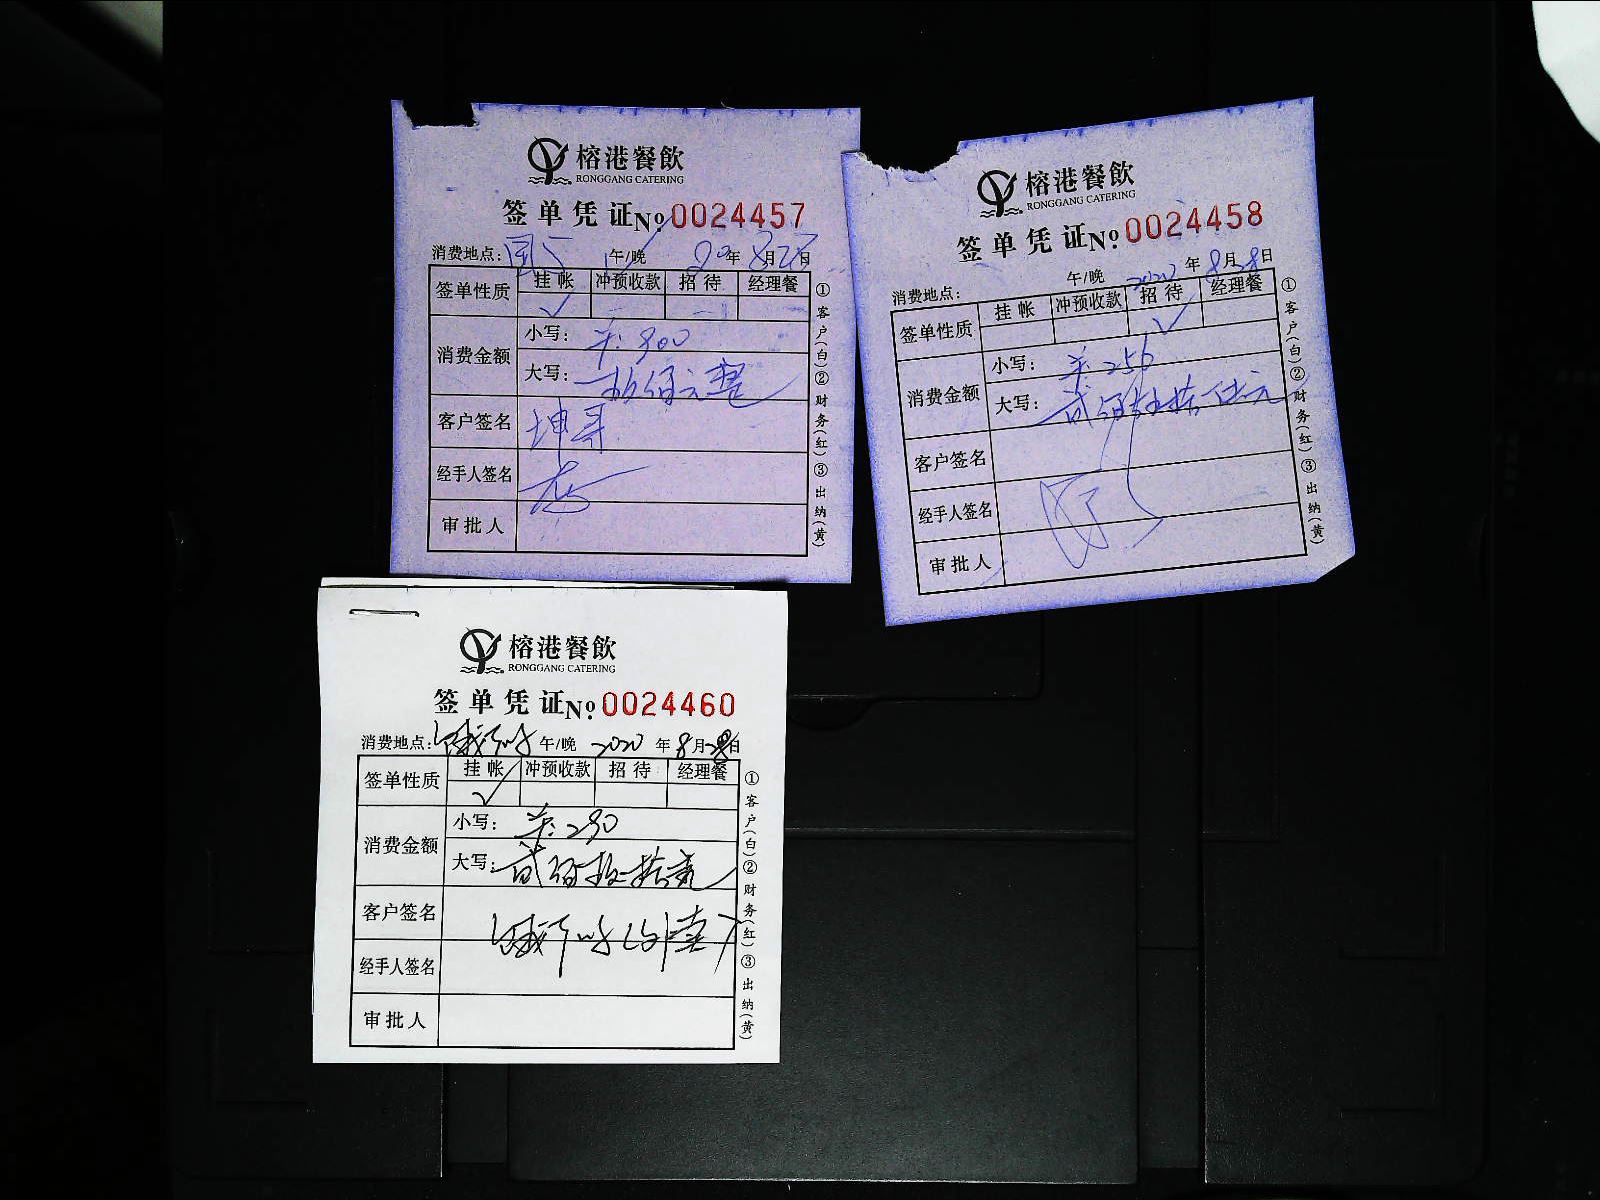 榕港餐飲
RONGGANG CATERING
签单凭证 No 0024457
消费地点： 午/晚 20年8月28日
签单性质 挂帐 冲预收款 招待 经理餐
✓
消费金额 小写：羊：900
大写： 玖佰元整
客户签名 坤哥
经手人签名
审批人
①客户(白)②财务(红)③出纳(黄)
榕港餐飲
RONGGANG CATERING
签单凭证 No 0024458
消费地点： 午/晚 2020年8月28日
签单性质 挂帐 冲预收款 招待 经理餐
✓
消费金额 小写：羊：256
大写：贰佰伍拾陆元
客户签名
经手人签名
审批人
①客户(白)②财务(红)③出纳(黄)
榕港餐飲
RONGGANG CATERING
签单凭证 No 0024460
消费地点：饿了吗 午/晚 2020年8月28日
签单性质 挂帐 冲预收款 招待 经理餐
✓
消费金额 小写：羊：290
大写：贰佰玖拾元
客户签名 饿了吗(外卖)
经手人签名
审批人
①客户(白)②财务(红)③出纳(黄)